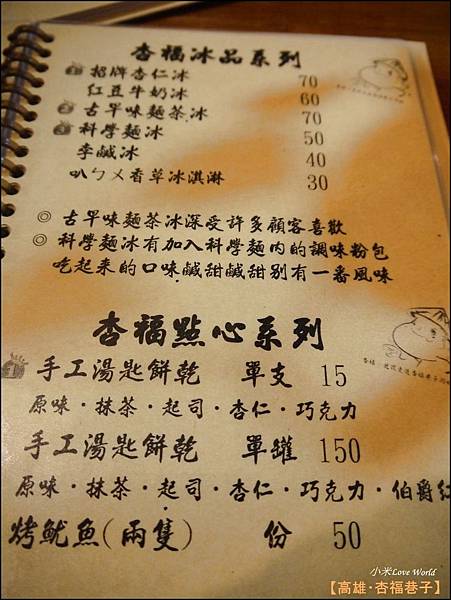 杏福冰品系列
招牌杏仁冰 70
紅豆牛奶冰 60
古早味麵茶冰 70
科學麵冰 50
李鹹冰 40
叭ㄅㄨ香草冰淇淋 30
◎ 古早味麵茶冰深受許多顧客喜歡
◎ 科學麵冰有加入科學麵內的調味粉包
吃起來的口味鹹甜鹹甜別有一番風味
杏福點心系列
手工湯匙餅乾 單支 15
原味·抹茶·起司·杏仁·巧克力
手工湯匙餅乾 單罐 150
原味·抹茶·起司·杏仁·巧克力·伯爵紅
烤魷魚(兩隻) 份 50
小米Love World
【高雄·杏福巷子】